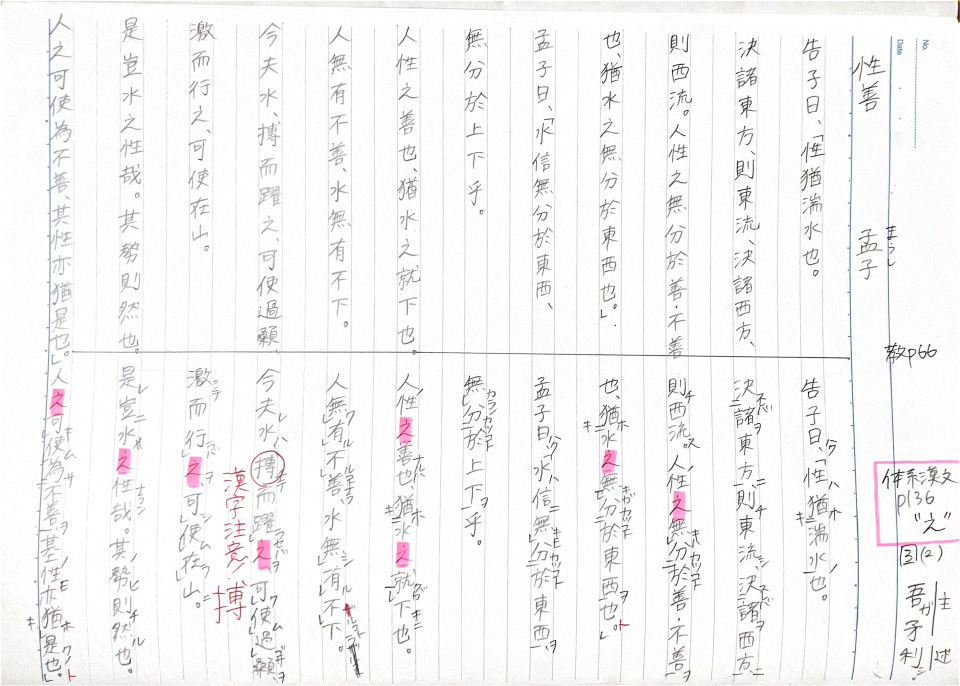 No.
Date
性善　孟子
もうし
教p66
告子曰、「性猶湍水也。
決諸東方、則東流、決諸西方、
則西流。人性之無分於善・不善
也、猶水之無分於東西也。」
孟子曰、「水信無分於東西、
無分於上下乎。
人性之善也、猶水之就下也。
人無有不善、水無有不下。
今夫水、搏而躍之、可使過顙、
激而行之、可使在山。
是豈水之性哉。其勢則然也。
人之可使為不善、其性亦猶是也。」
体系漢文
p136
"之"
③(2)
吾が子利
主
述
告子曰、「性猶湍水也。
決諸東方、則東流、決諸西方、
則西流。人性之無分於善・不善
也、猶水之無分於東西也。」
孟子曰、「水信無分於東西、
無分於上下乎。
人性之善也、猶水之就下也。
人無有不善、水無有不下。
今夫水、搏而躍之、可使過顙、
漢字注意！搏
激而行之、可使在山。
是豈水之性哉。其勢則然也。
人之可使為不善、其性亦猶是也。」